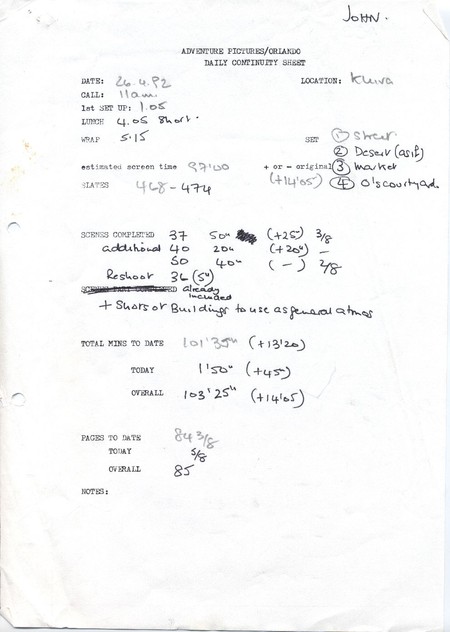 JOHN.
ADVENTURE PICTURES/ORLANDO
DAILY CONTINUITY SHEET
DATE: 26.4.92 LOCATION: Khiva
CALL: 11am
1st SET UP: 1.05
LUNCH 4.05 Short.
WRAP 5.15 SET ① street
② Desert (as if)
estimated screen time 97'00 + or - original ③ Market
SLATES 468-474 (+14'05) ④ O's courtyard.
SCENES COMPLETED 37 50" (+25") 3/8
additional 40 20" (+20") -
50 40" ( - ) 2/8
Reshoot 36 (5")
SCENES PART COMPLETED already included
+ Shots of Buildings to use as general atmos
TOTAL MINS TO DATE 101'35" (+13'20)
TODAY 1'50" (+45")
OVERALL 103'25" (+14'05)
PAGES TO DATE 84 3/8
TODAY 5/8
OVERALL 85
NOTES: